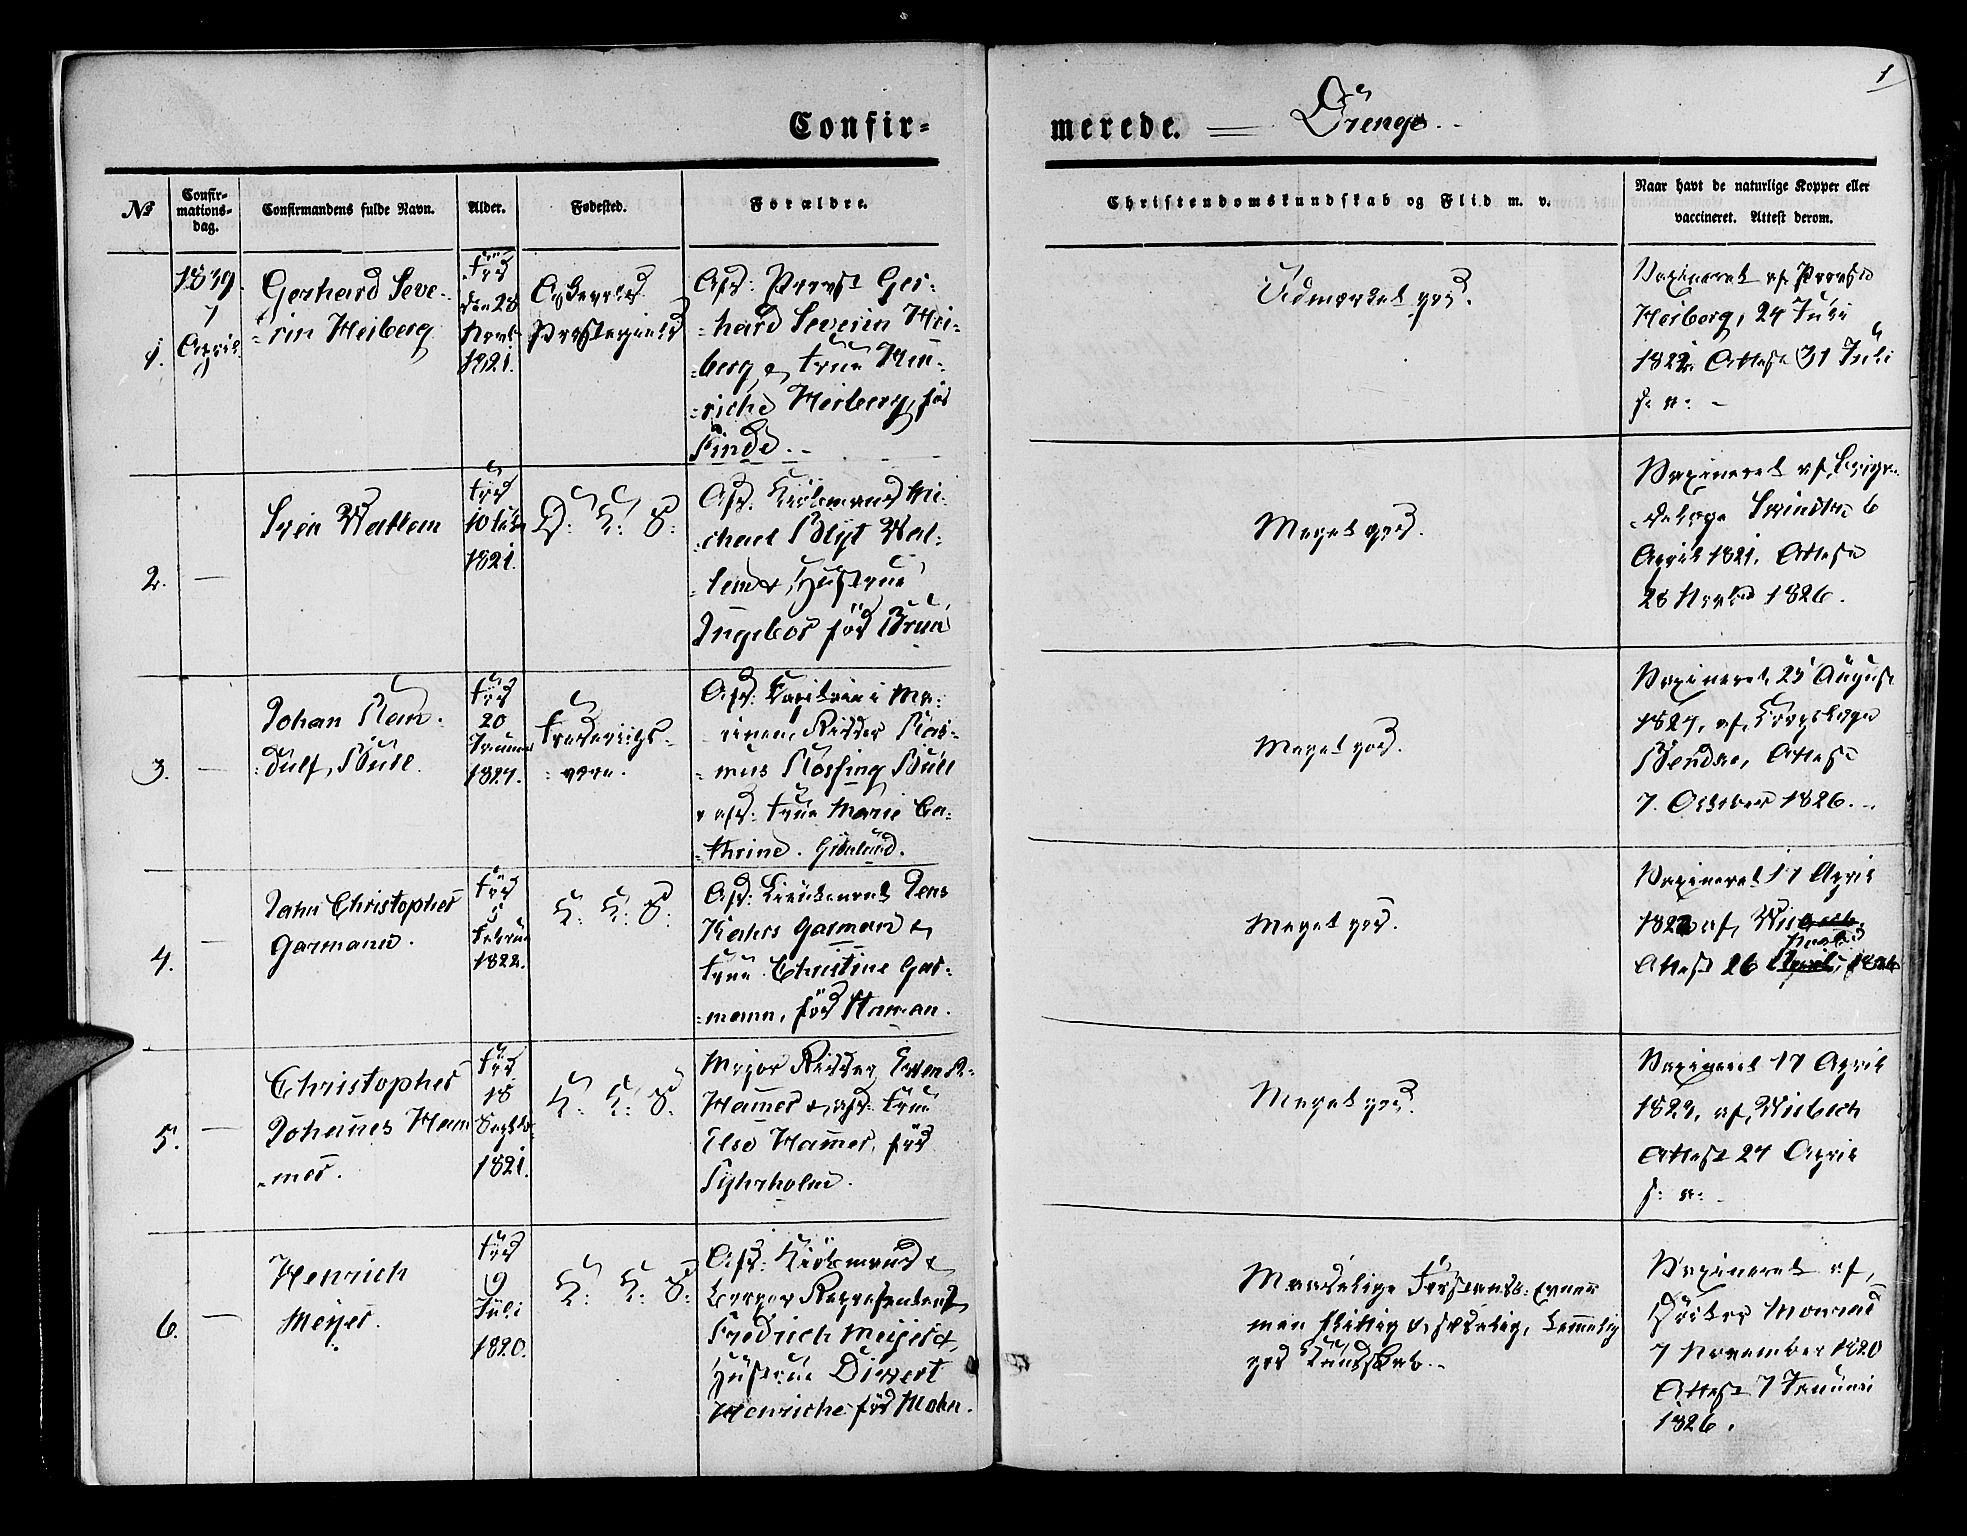 1
Confir-
merede. — Drenge.
No
Confir-
mations-
dag.
Confirmandens fulde Navn.
Alder.
Fødested.
Forældre.
Christendomskundskab og Flid m. v.
Naar havt de naturlige Kopper eller
vaccineret. Attest derom.
1.
1839.
7
April
Gerhard Seve-
-rin Heiberg
Fød
den 28
Novbr
1821.
Præstegield
Afd: Provst Ger-
-hard Severin Hei-
-berg & Frue Hen-
-riche Heiberg, fød
Finde.
Udmærket god.
Vaxineret af Provst
Heiberg, 24 Juli
Attest 31 Juli
s. a.
2.
—
Wallem
Fød
1821.
D: K: S:
Afd. Kiøbmand Mi-
-chael Blyt Wal-
-lem & Hustrue
Ingebor fød Brun
Meget god.
Vaxineret af Briga-
6
April 1821. Attest
28 Novbr 1826.
3.
—
Johan Ran-
-dulf Bull.
Fød
20
Januar
Frederiigs-
-værn.
Afd: Capitain i Ma-
-rinen, Ridder Ras-
-mus Rossing Bull
& afd: Frue Marie Ca-
-thrine. Grönlund.
Meget god.
Vaxineret 25 August
af Corpslæge
Attest
7. October 1826.
4.
—
Jahn Christopher
Garmann.
Fød
5
Februar
1822.
K: K: S:
Afd: Lieutenant Jens
Kahrs Garmann &
Frue Christine Gar-
-mann, fød
Meget god.
Vaxineret 17 April
af
Attest 26
5.
—
Christopher
Johannes Ham
-mer.
Fød
18
Septbr
1821.
K: K: S:
Major Ridder
Hammer & afd: Frue
Else Hammer, fød
Fyhrholm.
Meget god.
Vaxineret 17 April
1822, af Wisbech
Attest 27 April
s: a:
6.
—
Henrich
Meyer.
Fød
9
Juli
1820.
K: K: S:
Afd: Kiøbmand &
Borger Repræsentant
Fredrich Meyer &
Hustrue Divert
Henriche fød Mohn.
Maadelige Forstands-Evner
men flittig & sædelig, temmelig
god Kundskab.
Vaxineret af
Doctor Monrad
7 November 1820
Attest 7 Januar
1826.